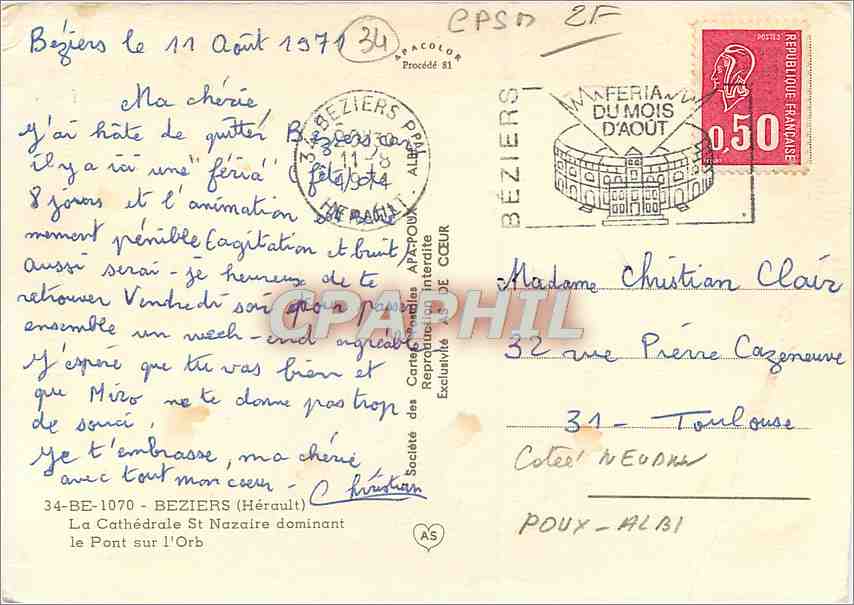 Béziers le 11 Août 1971
34
CPSM 2F
APACOLOR
Procédé 81
Ma chérie,
J'ai hâte de quitter Béziers car
il y a ici une "féria" (fête) de
8 jours et l'animation est
mement pénible (agitation et bruit)
Aussi serai-je heureux de te
retrouver Vendredi soir pour passer
ensemble un week-end agréable
J'espère que tu vas bien et
que Miro ne te donne pas trop
de souci.
Je t'embrasse, ma chérie
avec tout mon coeur - Christian
34-BE-1070 - BEZIERS (Hérault)
La Cathédrale St Nazaire dominant
le Pont sur l'Orb
34 BEZIERS PPAL
11-8
HERAULT
Société des Cartes Postales APA-POUX - ALBI
Reproduction interdite
Exclusivité AS DE CŒUR
AS
BÉZIERS
FERIA
DU MOIS
D'AOÛT
POSTES
REPUBLIQUE FRANÇAISE
0,50
Madame Christian Clair
32 rue Pierre Cazeneuve
31 - Toulouse
POUX - ALBI
CPAPHIL